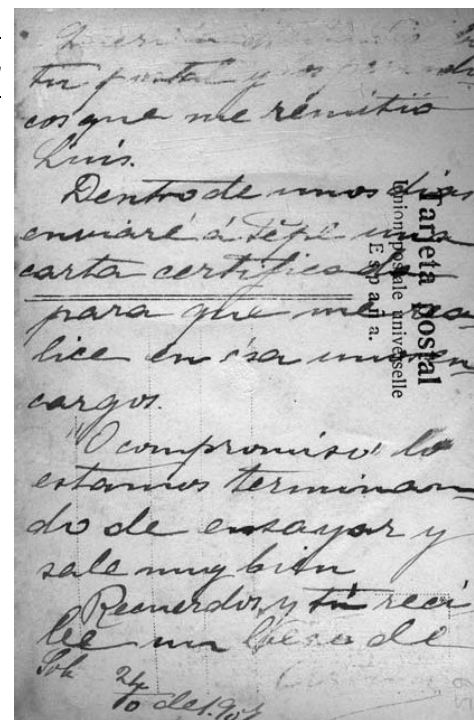 tu postal y
cos que me remitió
Luis.
Dentro de unos días
enviaré á Pepe una
carta certificada
para que me rea
lice en ésa unos en
cargos.
"O compromiso" lo
estamos terminan
do de ensayar y
sale muy bien
Recuerdos, y tú reci
be un beso de
24
de 1.90
Tarjeta postal
Union postale universelle
España.